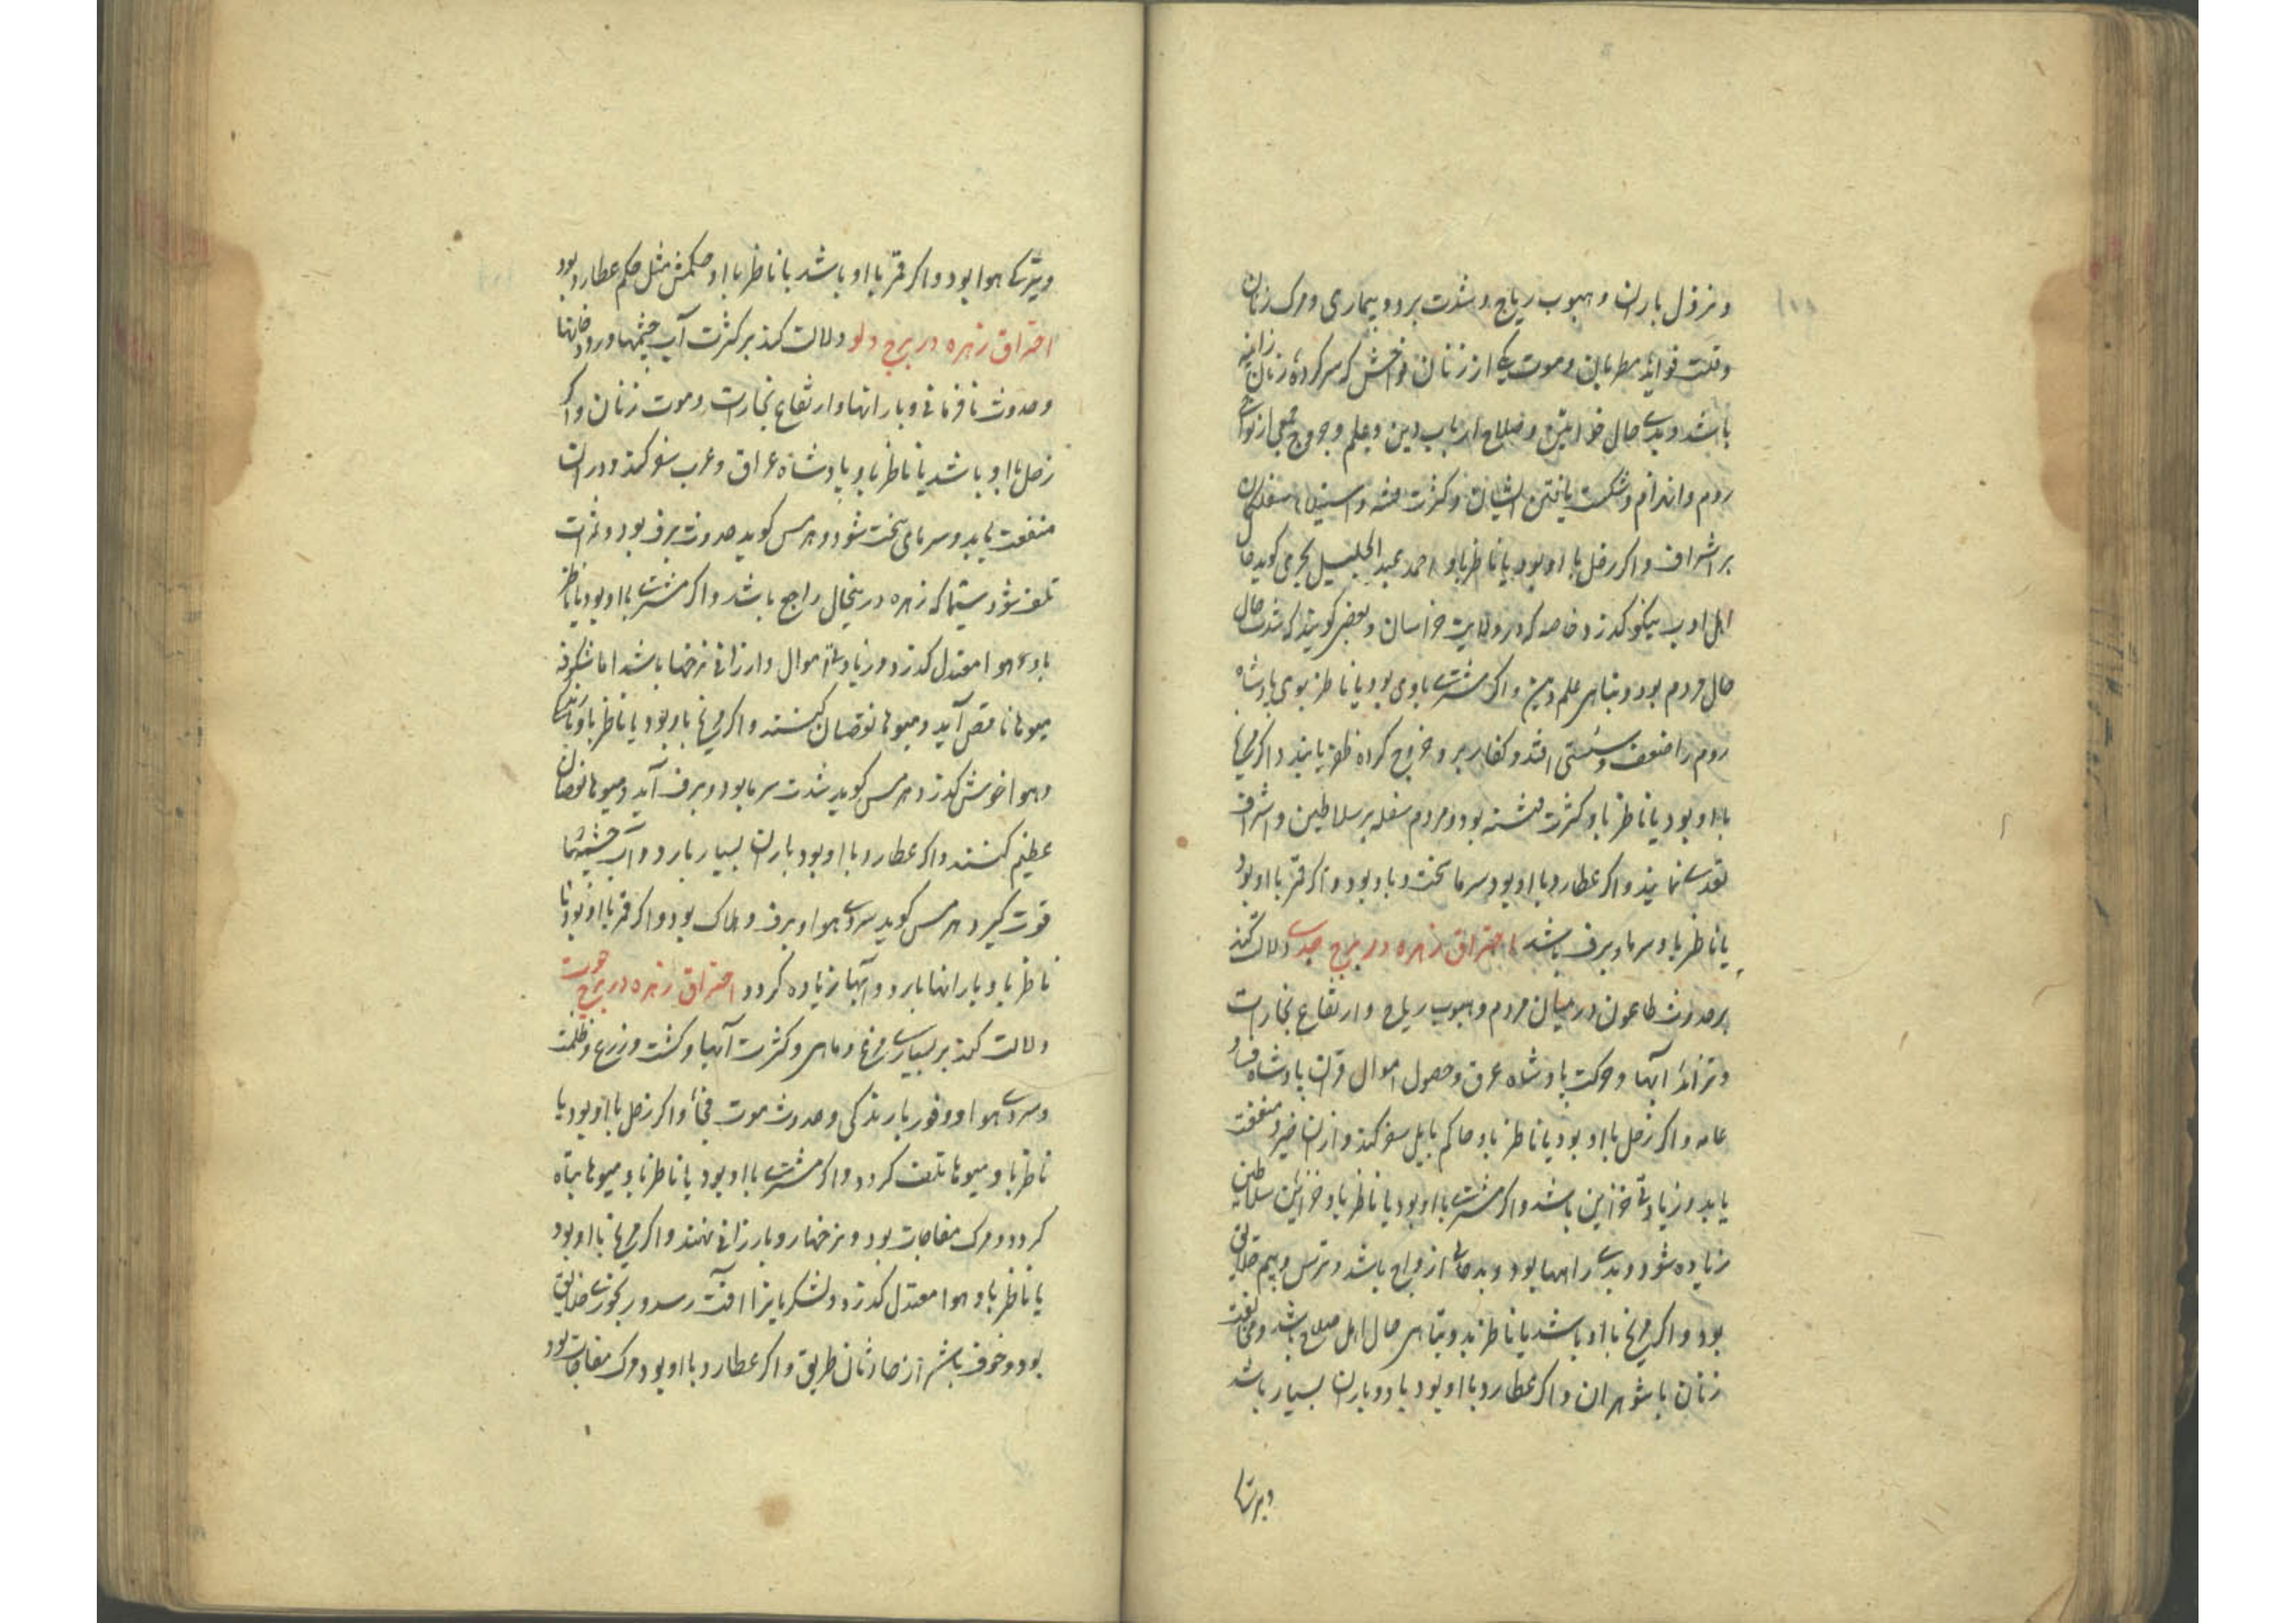 و نزول باران و هبوب ریاح و شدت برد و بیماری و مرک زنان
و قلت فواید مطربان و موت یکی از زنان فواحش که سرکرده زنان زانیه
باشد و بدی حال خواتین و صلاح ارباب دین و علم و خروج جمعی از نواحی
روم و انهزام و شکست یافتن ایشان و کثرت فتنه و استیلاء سفلکان
بر اشراف و اکر زحل با او بود یا ناظر باو احمد عبد الجلیل سجزی کوید حال
اهل ادب نیکو کذرد خاصه که در ولایت خراسان و بعضی کویند که شدت حال
حال مردم بود و تباهی علم دین و اکر مشتری باوی بود یا ناظر بوی پادشاه
روم را ضعف و سستی افتد و کفار برو خروج کرده ظفر یابند و اکر مریخ
با او بود یا ناظر باو کثرت فتنه بود و مردم سفله بر سلاطین و اشراف
تعدی نمایند و اکر عطارد با او بود سرما سخت و باد بود و اکر قمر با او بود
یا ناظر باو سرما و برف باشد احتراق زهره در برج جدی دلالت کند
بر حدوث طاعون در میان مردم و هبوب ریاح و ارتفاع بخارات
و تزاید آبها و حرکت پادشاه عراق و حصول اموال قران پادشاه و فساد
عامه و اکر زحل با او بود یا ناظر باو حاکم بابل سفر کند و ازان خیر و منفعت
یابد و زیادتی خزاین باشد و اکر مشتری با او بود یا ناظر باو خزائن سلاطین
زیاده شود و بدی راهها بود و بدحالی ازواج باشد و ترس و بیم خلایق
بود و اکر مریخ با او باشد یا ناظر بدو تباهی حال اهل صلاح باشد و مخالفت
زنان با شوهران و اکر عطارد با او بود باد و باران بسیار باشد
و تیرکی
و تیرکی هوا بود و اکر قمر با او باشد یا ناظر با او حکمش مثل حکم عطارد بود
احتراق زهره در برج دلو دلالت کند بر کثرت آب چشمها و رودخانها
و حدوث نافرمانی و بارانها و ارتفاع بخارات و موت زنان و اکر
زحل با او باشد یا ناظر باو پادشاه عراق و عرب سفر کند و دران
منفعت یابد و سرمای سخت شود و هرمس کوید حدوث برف بود و ثمرات
تلف شود سیما که زهره درینحال راجع باشد و اکر مشتری با او بود یا ناظر
باو هوا معتدل کذرد و زیادتی اموال و ارزانی نرخها باشد اما شکوفه
میوها ناقص آید و میوها نقصان کنند و اکر مریخ باو بود یا ناظر باو
و هوا خوش کذرد هرمس کوید شدت سرما بود و برف آید و میوها نقصان
عظیم کنند و اکر عطارد با او بود باران بسیار بارد و آب چشمها
قوت کیرد هرمس کوید سردی هوا و برف و هلاک بود و اکر قمر با او بود یا
ناظر باو بارانها بارد و آبها زیاده کردد احتراق زهره در برج حوت
دلالت کند بر بسیاری مرغ و ماهی و کثرت آبها و کشت و زرع و ظلمت
و سردی هوا و وفور بارندکی و حدوث موت فجأ و اکر زحل با او بود یا
ناظر باو میوها تلف کردد و اکر مشتری با او بود یا ناظر باو میوها تباه
کردد و مرک مفاجات بود و نرخها رو بارزانی نهند و اکر مریخ با او بود
یا ناظر باو هوا معتدل کذرد و لشکریانرا آفت رسد و رنجوری خلایق
بود و خوف باشد از حادثان طریق و اکر عطارد با او بود مرک مفاجات بود